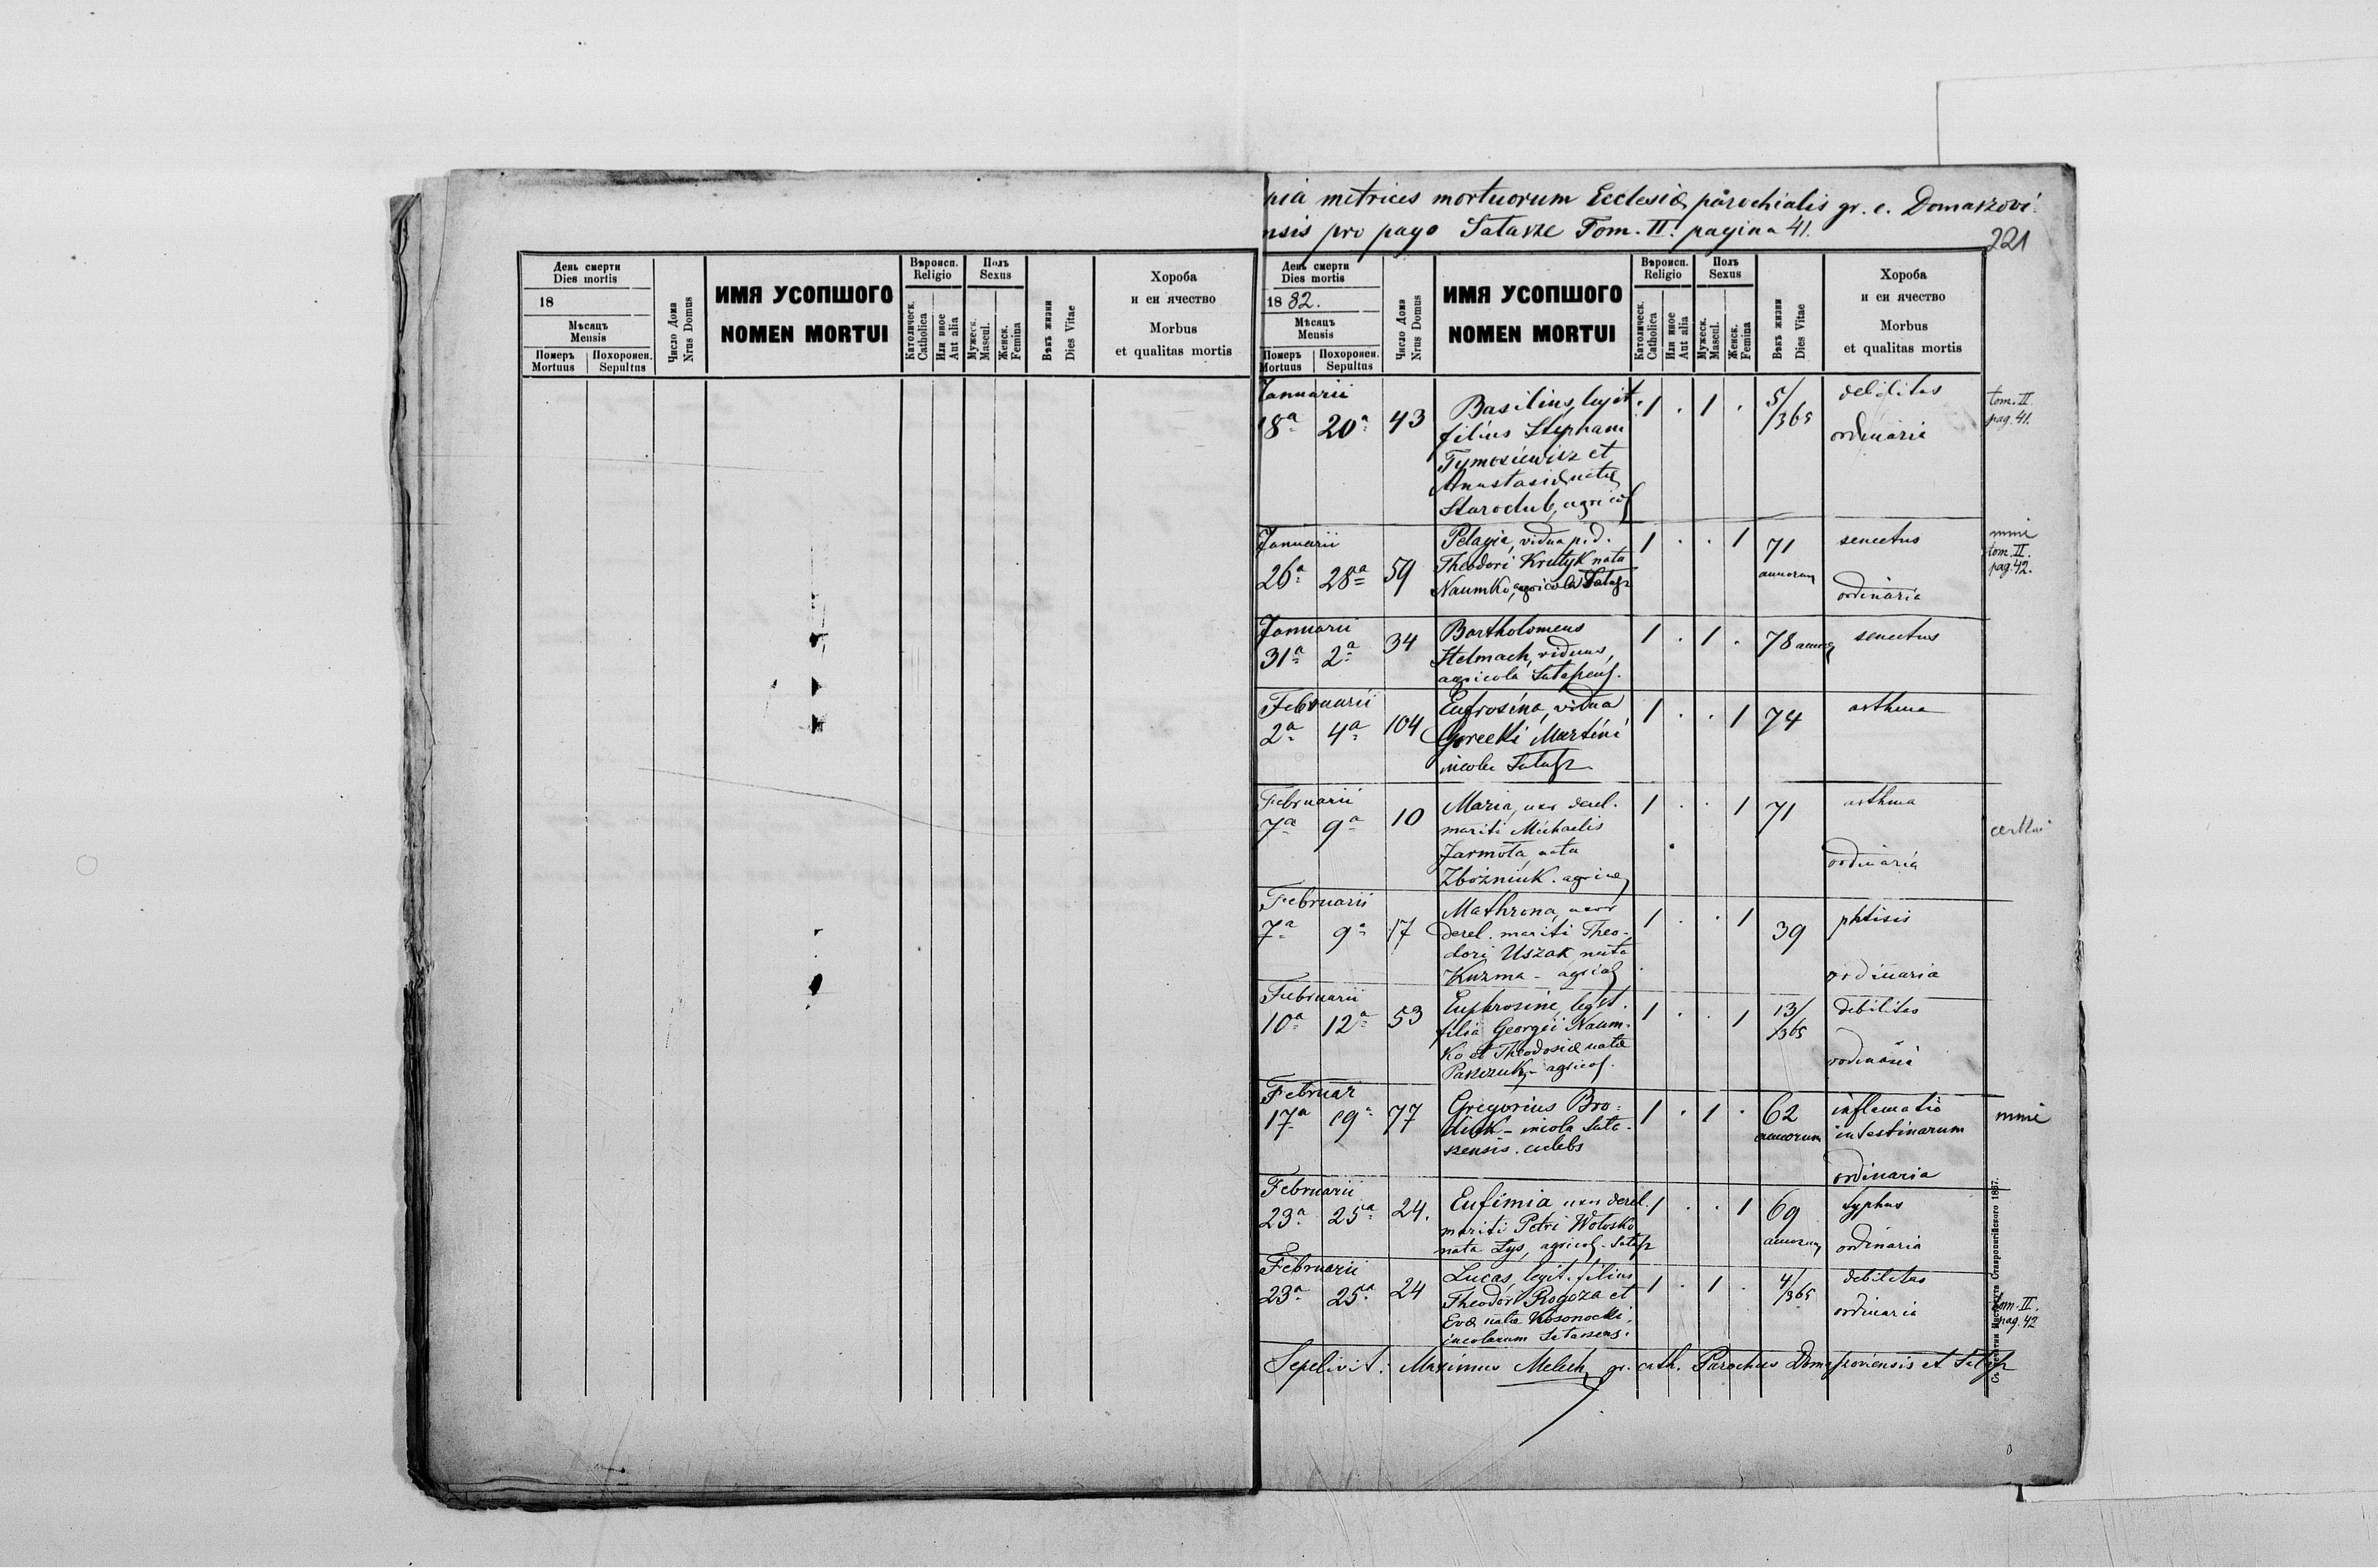 День смерти
Dies mortis
18
Мѣсяцъ
Mensis
Померъ
Mortuus
Похоронен.
Sepultus
Число Дома
Nrus Domus
ИМЯ УСОПШОГО
NOMEN MORTUI
Вѣроисп.
Religio
Католическ.
Catholica
Или иное
Aut alia
Полъ
Sexus
Мужеск.
Mascul.
Женск.
Femina
Вѣкъ жизни
Dies Vitae
Хороба
и еи ячество
Morbus
et qualitas mortis
pia metrices mortuorum Ecclesiæ parochialis gr. c. Domarzovi-
nsis pro pago Satarze Tom. II. pagina 41.
221
День смерти
Dies mortis
1882.
Мѣсяцъ
Mensis
Померъ
Mortuus
Похоронен.
Sepultus
Число Дома
Nrus Domus
ИМЯ УСОПШОГО
NOMEN MORTUI
Вѣроисп.
Religio
Католическ.
Catholica
Или иное
Aut alia
Полъ
Sexus
Мужеск.
Mascul.
Женск.
Femina
Вѣкъ жизни
Dies Vitae
Хороба
и еи ячество
Morbus
et qualitas mortis
Januarii
18a 20a 43 Basilius, legit. 1 . 1 . 5/365 debilitas
filius Stephani ordinaria
Tymosiewicz et
Anastasiæ natæ
Starodub, agricol
tom. II.
pag. 41.
Januarii
26a 28a 59 Pelagia, vidua p. d. 1 . . 1 71 annorum senectus
Theodori Krutyk nata
Naumko, agricola ordinaria
tom. II.
pag. 42.
Januarii
31a 2a 34 Bartholomeus 1 . 1 . 78 senectus
Stelmach, viduus,
agricola
Februarii
2a 4a 104 Eufrosina, vidua 1 . . 1 74 asthma
Gorecki Martini
incola
Februarii
7a 9a 10 Maria, uxor derel. 1 . . 1 71 asthma
mariti Michaelis
Jarmota, nata
Zbożniuk. ordinaria
Februarii
7a 9a 17 Mathrona, uxor 1 . . 1 39 phtisis
derel. mariti Theo-
dori Uszak, nata
Kuzma - agricol ordinaria
Februarii
10a 12a 53 Euphrosine, legit. 1 . . 1 13/365 debilitas
filia Georgii Naum-
ko et Theodosiæ natæ
agricol. ordinaria
Februar
17a 19a 77 Gregorius Bro- 1 . 1 . 62 annorum inflamatio
incola Sata- intestinarum
rzensis. cælebs
ordinaria
Februarii
23a 25a 24. Eufimia uxor derel. 1 . . 1 69 annorum typhus
mariti Petri Wołosko
nata Lys, agricol. ordinaria
Februarii
23a 25a 24 Lucas, legit. filius 1 . 1 . 4/365 debilitas
Theodori Rogoza et
Evæ natæ Kosonocki, ordinaria
incolarum
tom. II.
pag. 42
Sepelivit: Maximus Melech, gr. cath. Parochus
Ставропигійского 1867.